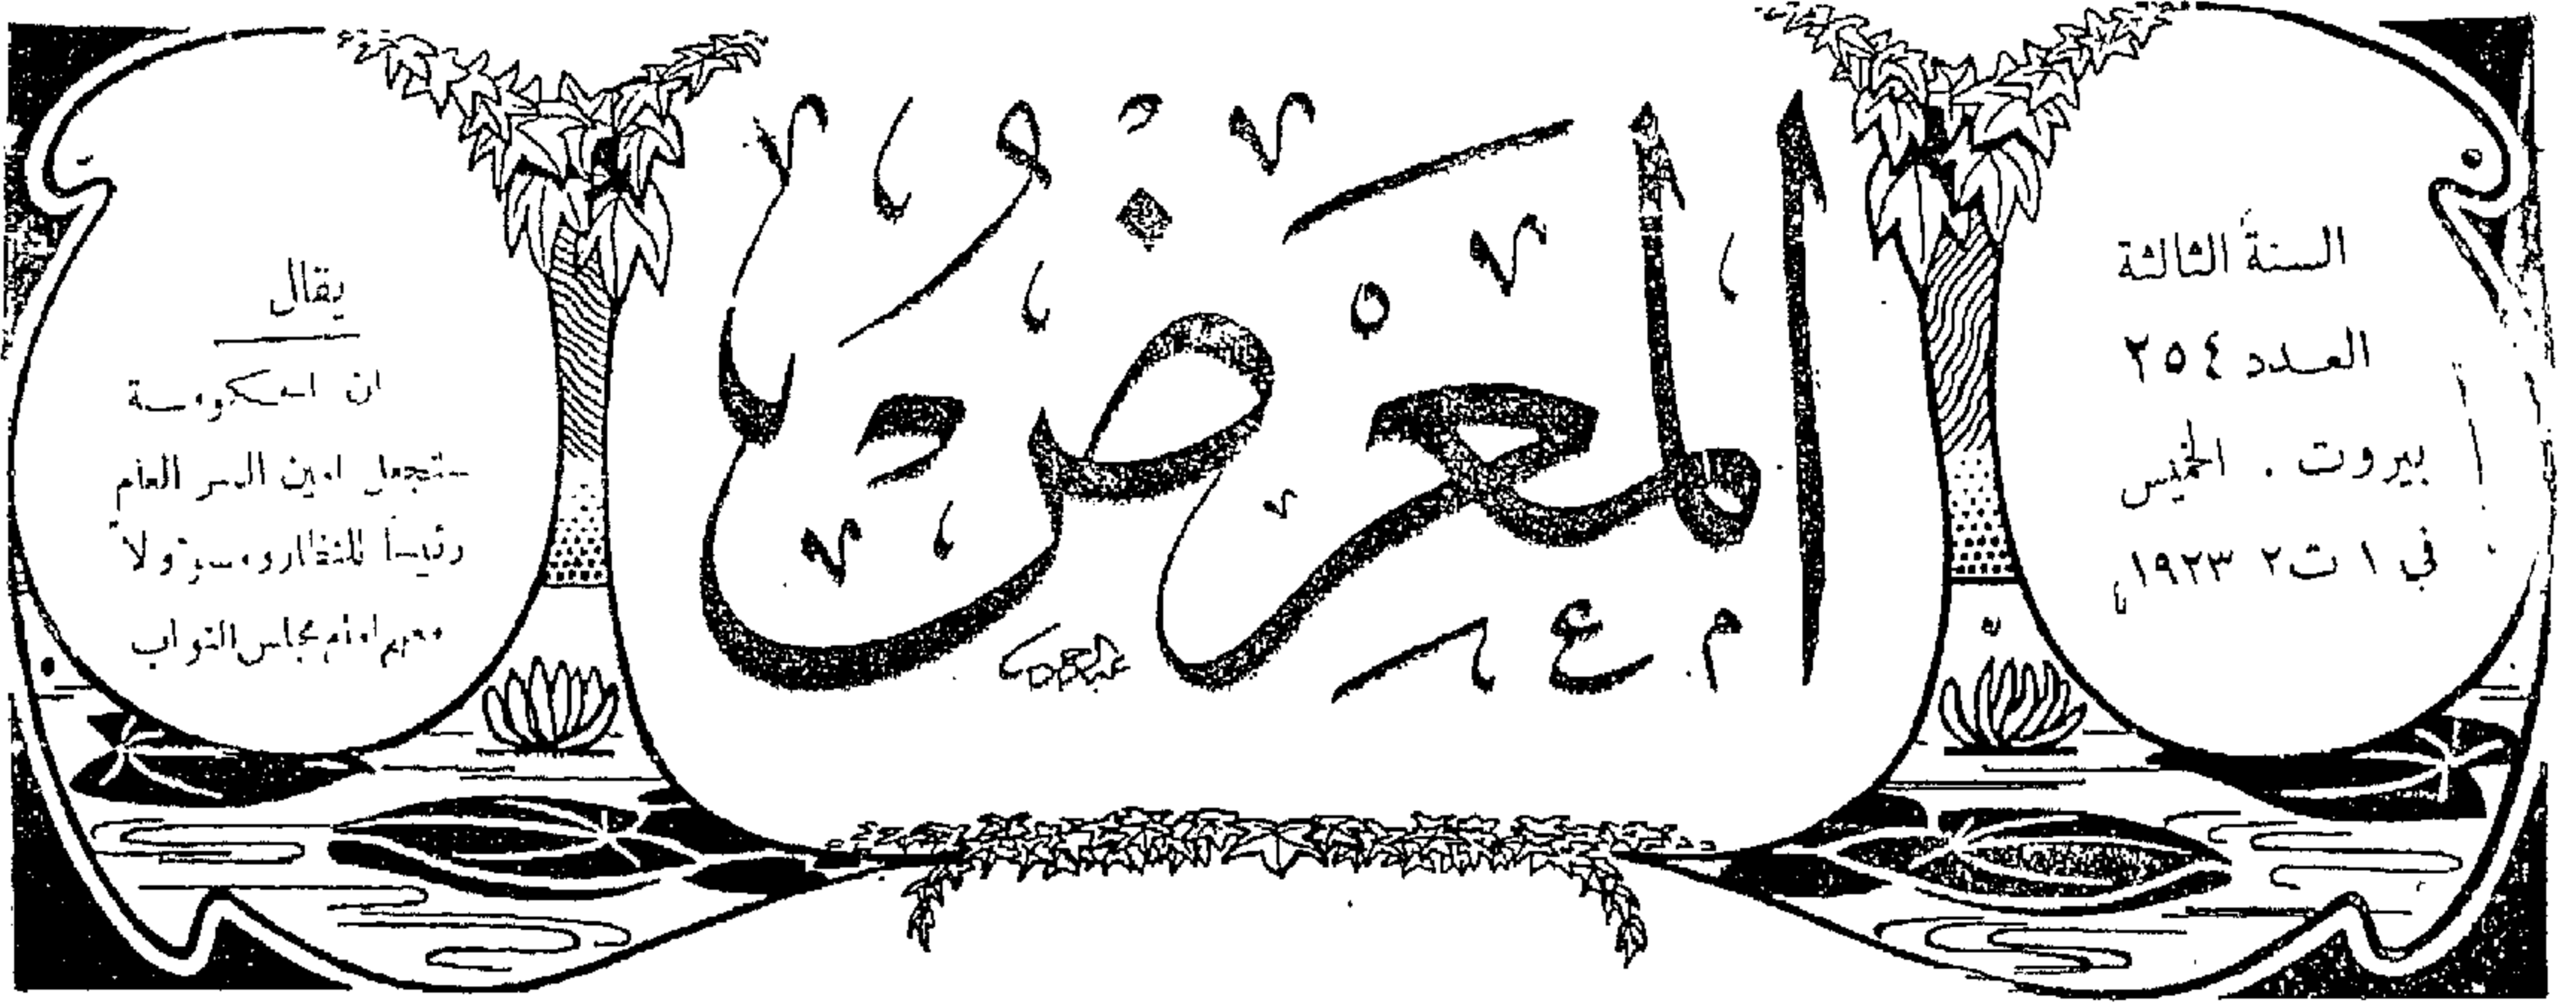 السنة الثالثة
العدد ٢٥٤
بيروت . الخميس
في ١ ت٢ ١٩٢٣
المعرض
يقال
ان الحكومة
ستجعل امين السر العام
رئيساً للنظار ومسؤولاً
معهم امام مجلس النواب